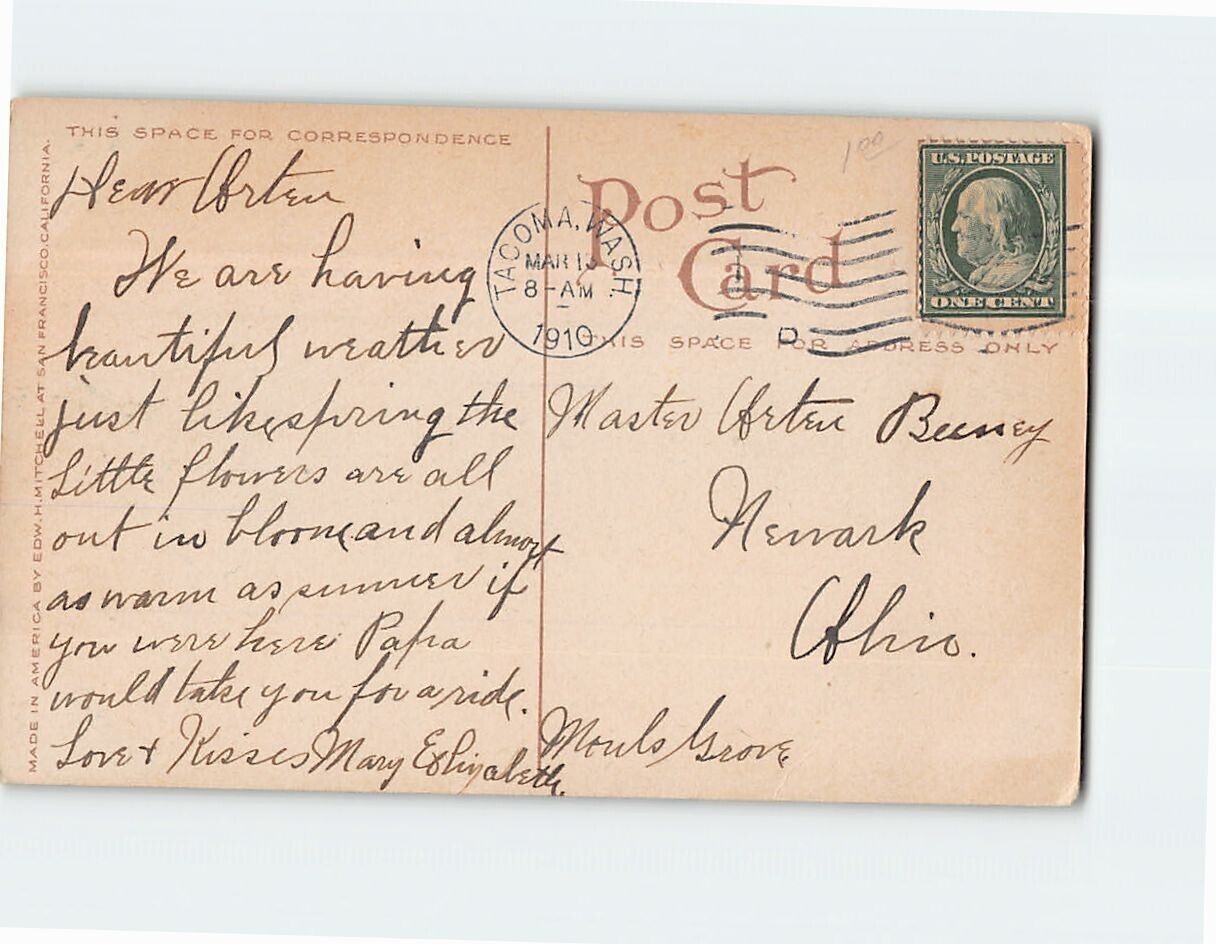 THIS SPACE FOR CORRESPONDENCE
Dear Orten
We are having
beautiful weather
just like spring the
little flowers are all
out in bloom and almost
as warm as summer if
you were here Papa
would take you for a ride.
Love & Kisses Mary Elizabeth.
MADE IN AMERICA BY EDW. H. MITCHELL AT SAN FRANCISCO, CALIFORNIA.
Post
Card
1 00
U.S. POSTAGE
ONE CENT
TACOMA, WASH.
MAR
8-AM
1910
D
THIS SPACE FOR ADDRESS ONLY
Master Orten
Newark
Ohio.
Grove